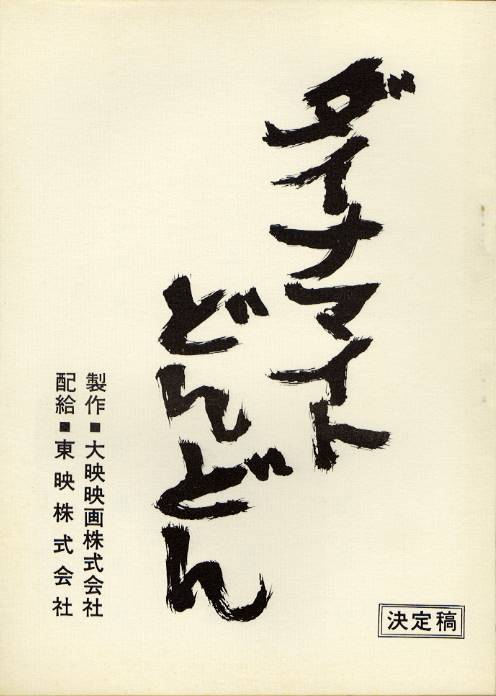 ダイナマイト
どんどん
製作■大映映画株式会社
配給■東映株式会社
決定稿